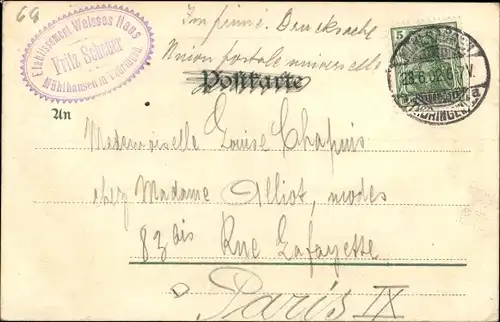 64
Etablissement Weisses Haus
Fritz Scheuer
Mühlhausen in Thüringen
Imprimé. Drucksache
Union postale universelle
Postkarte
5
28.6.02.
THÜRINGEN
a
An
Mademoiselle Louise Chapuis
chez Madame Alliot, modes
83 bis Rue Lafayette
Paris IX